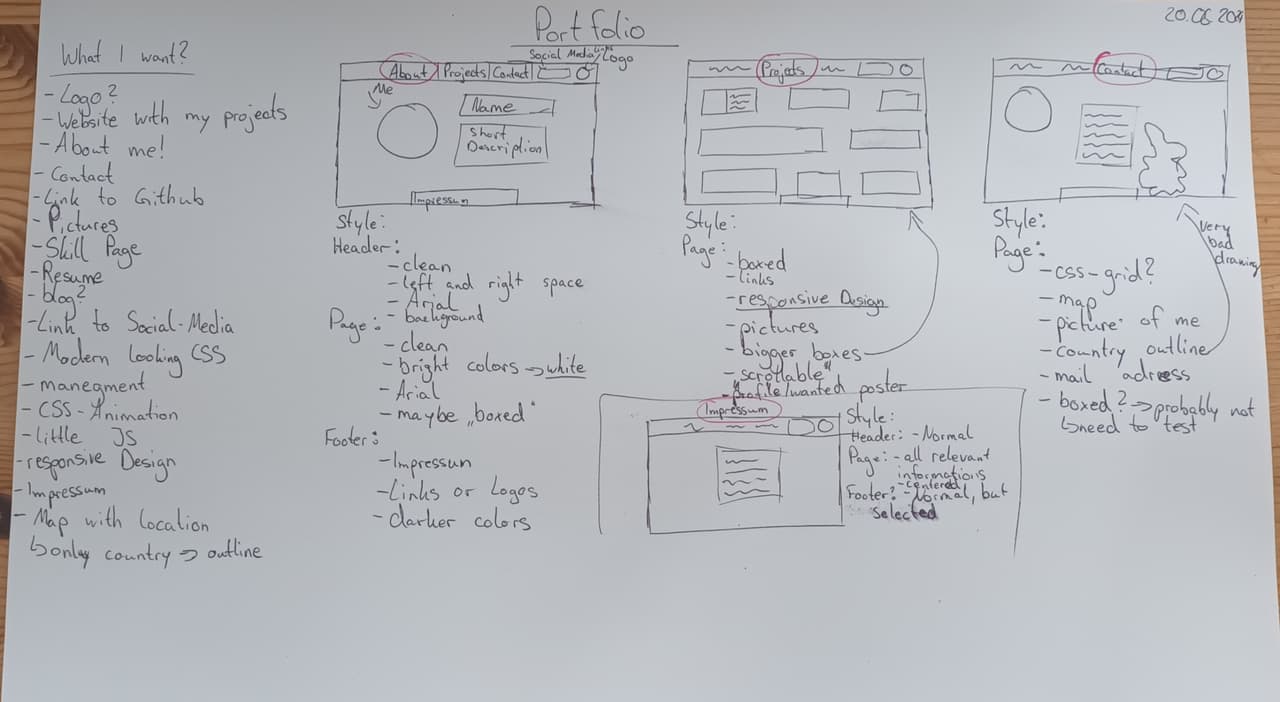 Portfolio
20.06.20
What I want?
- Logo?
- Website with my projects
- About me!
- Contact
- Link to Github
- Pictures
- Skill Page
- Resume
- blog?
- Link to Social-Media
- Modern looking CSS
- manegment
- CSS-Animation
- little JS
- responsive Design
- Impressum
- Map with location
↳ only country → outline
Social Media Links
Logo
About Projects Contact
Me
Name
Short
Description
Impressum
Style:
Header:
- clean
- left and right space
- Arial
- background
Page:
- clean
- bright colors → white
- Arial
- maybe „boxed"
Footer:
- Impressum
- Links or Logos
- darker colors
Projects
Style:
Page:
- boxed
- links
- responsive Design
- pictures
- bigger boxes
- scrollable
- "profile/wanted poster"
Impressum
Style:
Header: - Normal
Page: - all relevant
informations
- centered
Footer? - Normal, but
selected
Contact
Style:
very
bad
drawing
Page:
- css-grid?
- map
- picture of me
- country outline
- mail adress
- boxed? → probably not
↳ need to test